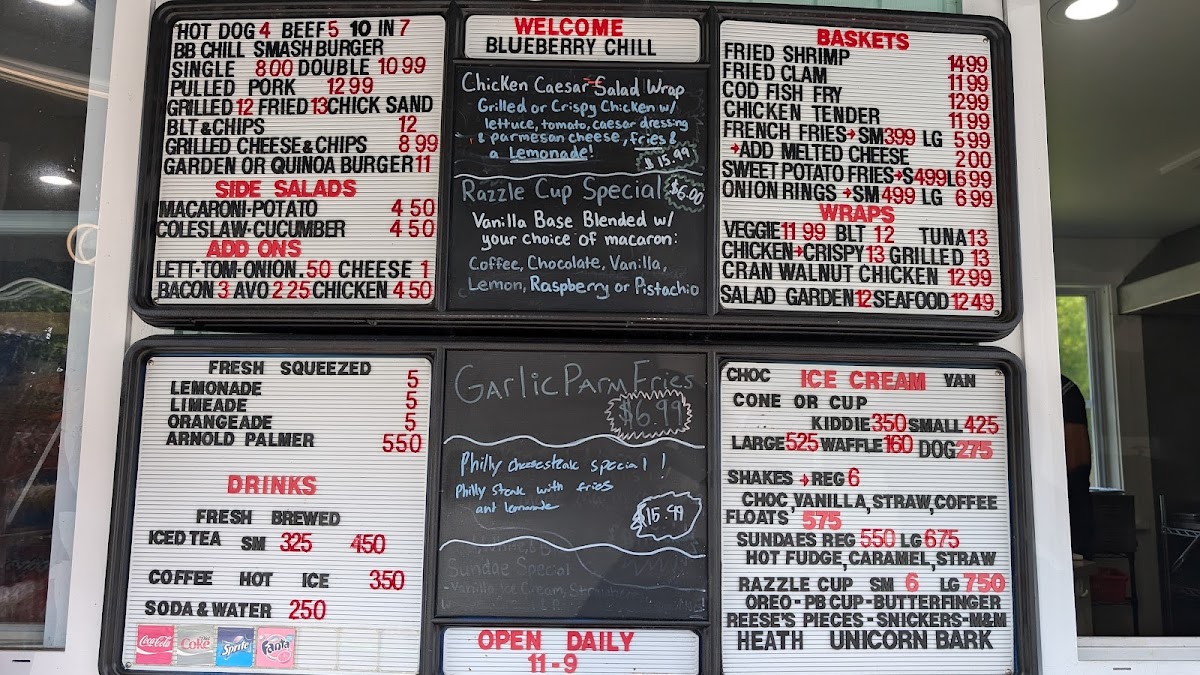 HOT DOG 4 BEEF 5 10 IN 7
BB CHILL SMASH BURGER
SINGLE 8 00 DOUBLE 10 99
PULLED PORK 12 99
GRILLED 12 FRIED 13 CHICK SAND
BLT & CHIPS 12
GRILLED CHEESE & CHIPS 8 99
GARDEN OR QUINOA BURGER 11
SIDE SALADS
MACARONI-POTATO 4 50
COLESLAW-CUCUMBER 4 50
ADD ONS
LETT-TOM-ONION .50 CHEESE 1
BACON 3 AVO 2 25 CHICKEN 4 50
WELCOME
BLUEBERRY CHILL
Chicken Caesar Salad Wrap
Grilled or Crispy Chicken w/
lettuce, tomato, caesar dressing
& parmesan cheese, fries &
a Lemonade!
$15.99
Razzle Cup Special $6.00
Vanilla Base Blended w/
your choice of macaron:
Coffee, Chocolate, Vanilla,
Lemon, Raspberry or Pistachio
BASKETS
FRIED SHRIMP 14 99
FRIED CLAM 11 99
COD FISH FRY 12 99
CHICKEN TENDER 11 99
FRENCH FRIES → SM 3 99 LG 5 99
→ ADD MELTED CHEESE 2 00
SWEET POTATO FRIES → S 4 99 L 6 99
ONION RINGS → SM 4 99 LG 6 99
WRAPS
VEGGIE 11 99 BLT 12 TUNA 13
CHICKEN → CRISPY 13 GRILLED 13
CRAN WALNUT CHICKEN 12 99
SALAD GARDEN 12 SEAFOOD 12 49
FRESH SQUEEZED
LEMONADE 5
LIMEADE 5
ORANGEADE 5
ARNOLD PALMER 5 50
DRINKS
FRESH BREWED
ICED TEA SM 3 25 4 50
COFFEE HOT ICE 3 50
SODA & WATER 2 50
Coca-Cola Coke Sprite Fanta
Garlic Parm Fries
$6.99
Philly cheesesteak special!!
Philly steak with fries
and lemonade
$15.99
Sundae Special
Vanilla Ice Cream,
OPEN DAILY
11-9
CHOC ICE CREAM VAN
CONE OR CUP
KIDDIE 3 50 SMALL 4 25
LARGE 5 25 WAFFLE 1 60 DOG 2 75
SHAKES → REG 6
CHOC, VANILLA, STRAW, COFFEE
FLOATS 5 75
SUNDAES REG 5 50 LG 6 75
HOT FUDGE, CARAMEL, STRAW
RAZZLE CUP SM 6 LG 7 50
OREO-PB CUP-BUTTERFINGER
REESE'S PIECES-SNICKERS-M&M
HEATH UNICORN BARK